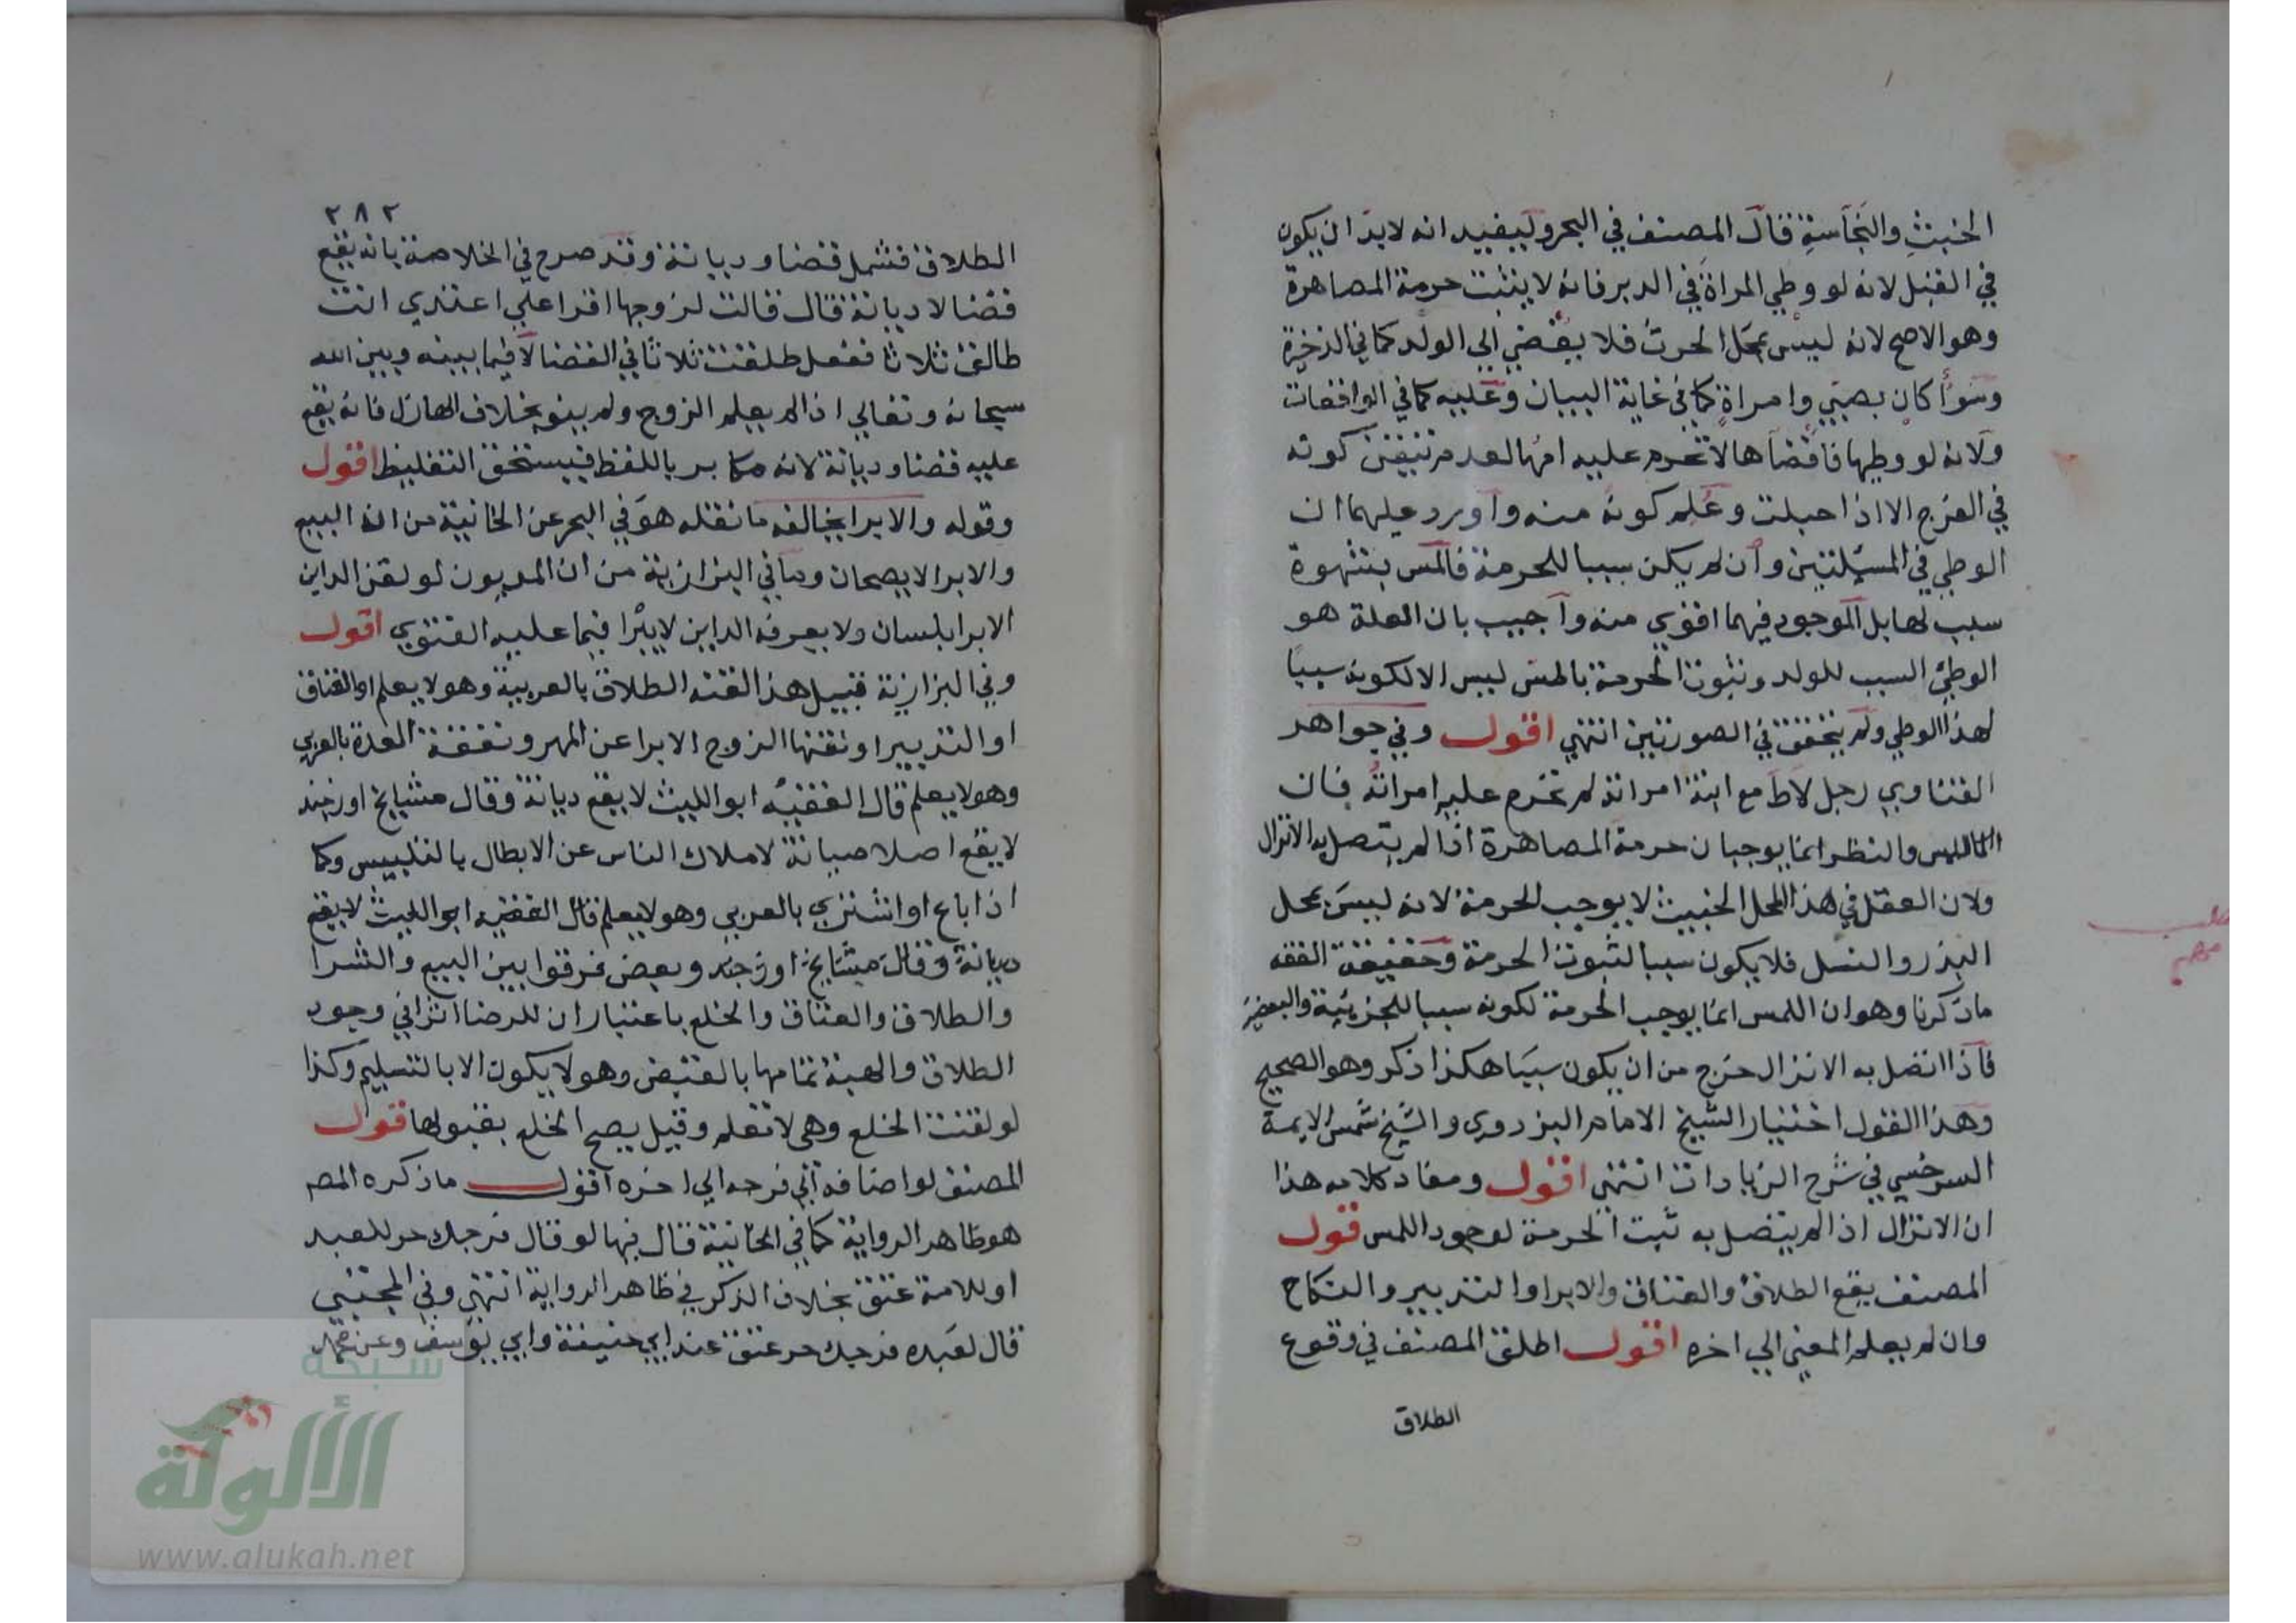 الخبث والنجاسة قال المصنف في البحر وليفيد انه لا بد ان يكون
في القبل لانه لو وطي المراة في الدبر فانه لا يثبت حرمة المصاهرة
وهو الاصح لانه ليس بمحل الحرث فلا يفضي الي الولد كما في الذخيرة
وسوأ كان بصبي وامراة كما في غاية البيان وعليه كما في الواقعات
ولانه لو وطيها فافضاها لا تحرم عليه امها لعدم تيقن كونه
في الفرج الا اذا حبلت وعلم كونه منه واورد عليهما ان
الوطي في المسيلتين وان لم يكن سببا للحرمة فالمس بشهوة
سبب لها بل الموجود فيهما اقوي منه واجيب بان العلة هو
الوطي السبب للولد وثبوت الحرمة بالمس ليس الا لكونه سببا
لهذا الوطي ولم يتحقق في الصورتين انتهي اقول وفي جواهر
الفتاوي رجل لاط مع ابنة امراته لم تحرم عليه امراته فان
اللمس والنظر انما يوجبان حرمة المصاهرة اذا لم يتصل به الانزال
ولان العقل في هذا المحل الخبيث لا يوجب الحرمة لانه ليس بمحل
البذر والنسل فلا يكون سببا لثبوت الحرمة وحقيقة الفقه
ما ذكرنا وهو ان اللمس انما يوجب الحرمة لكونه سببا للجزئية والبعضية
فاذا اتصل به الانزال خرج من ان يكون سببا هكذا ذكر وهو الصحيح
وهذا القول اختيار الشيخ الامام البزدوي والشيخ شمس الايمة
السرخسي في شرح الزيادات انتهي اقول ومفاد كلامه هذا
ان الانزال اذا لم يتصل به ثبت الحرمة لوجود اللمس قول
المصنف يقع الطلاق والعتاق والابرا والتدبير والنكاح
وان لم يعلم المعني الي اخره اقول اطلق المصنف في وقوع
الطلاق
مهم
٢٨٢
الطلاق فشمل قضا وديانة وقد صرح في الخلاصة بانه يقع
قضا لا ديانة قال قالت لزوجها اقرا علي اعتدي انت
طالق ثلاثا ففعل طلقت ثلاثا في القضا لا فيما بينه وبين الله
سبحانه وتعالي اذا لم يعلم الزوج ولم ينو بخلاف الهازل فانه يقع
عليه قضا وديانة لانه مكابر باللفظ فيستحق التغليظ اقول
وقوله والابرا يخالفه ما نقله هو في البحر عن الخانية من ان البيع
والابرا لا يصحان وما في البزازية من ان المديون لو لقن الداين
الابرا بلسان ولا يعرفه الداين لا يبرا فيما عليه الفتوي اقول
وفي البزازية قبيل هذا لقنه الطلاق بالعربية وهو لا يعلم او العتاق
او التدبير او لقنها الزوج الابرا عن المهر ونفقة العدة بالعربي
وهو لا يعلم قال الفقيه ابو الليث لا يقع ديانة وقال مشايخ اوزجند
لا يقع اصلا صيانة لاملاك الناس عن الابطال بالتلبيس وكما
اذا باع او اشتري بالعربي وهو لا يعلم قال الفقيه ابو الليث لا يقع
ديانة وقال مشايخ اوزجند وبعض فرقوا بين البيع والشرا
والطلاق والعتاق والخلع باعتبار ان للرضا اثرا في وجود
الطلاق والهبة تمامها بالقبض وهو لا يكون الا بالتسليم وكذا
لو لقنت الخلع وهي لا تعلم وقيل يصح الخلع بقبولها قول
المصنف لو اضافه الي فرجه الي اخره اقول ما ذكره المصـ
هو ظاهر الرواية كما في الخانية قال فيها لو قال فرجك حر للعبد
او للامة عتق بخلاف الذكر في ظاهر الرواية انتهي وفي المجتبي
قال لعبده فرجك حر عتق عند ابي حنيفة وابي يوسف وعن محمد
شبكة
الألوكة
www.alukah.net